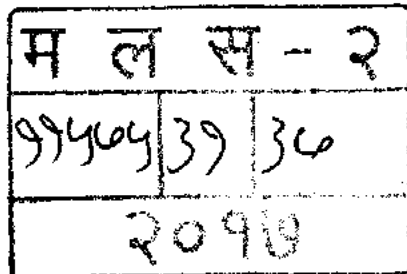 म ल स - २
११५७५ ३१ ३७
२०१७